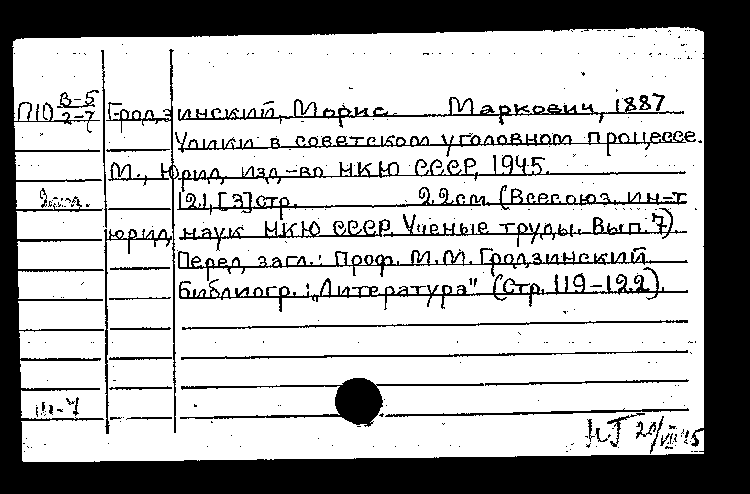 П10 В-5/2-7 Гродзинский, Морис Маркович, 1887
Улики в советском уголовном процессе.
М., Юрид. изд-во НКЮ СССР, 1945.
121, [3] стр. 22см. (Всесоюз. ин-т
юрид. наук НКЮ СССР. Ученые труды. Вып. 7).
Перед загл.: Проф. М.М. Гродзинский.
Библиогр.: „Литература" (Стр. 119-122).
III-7